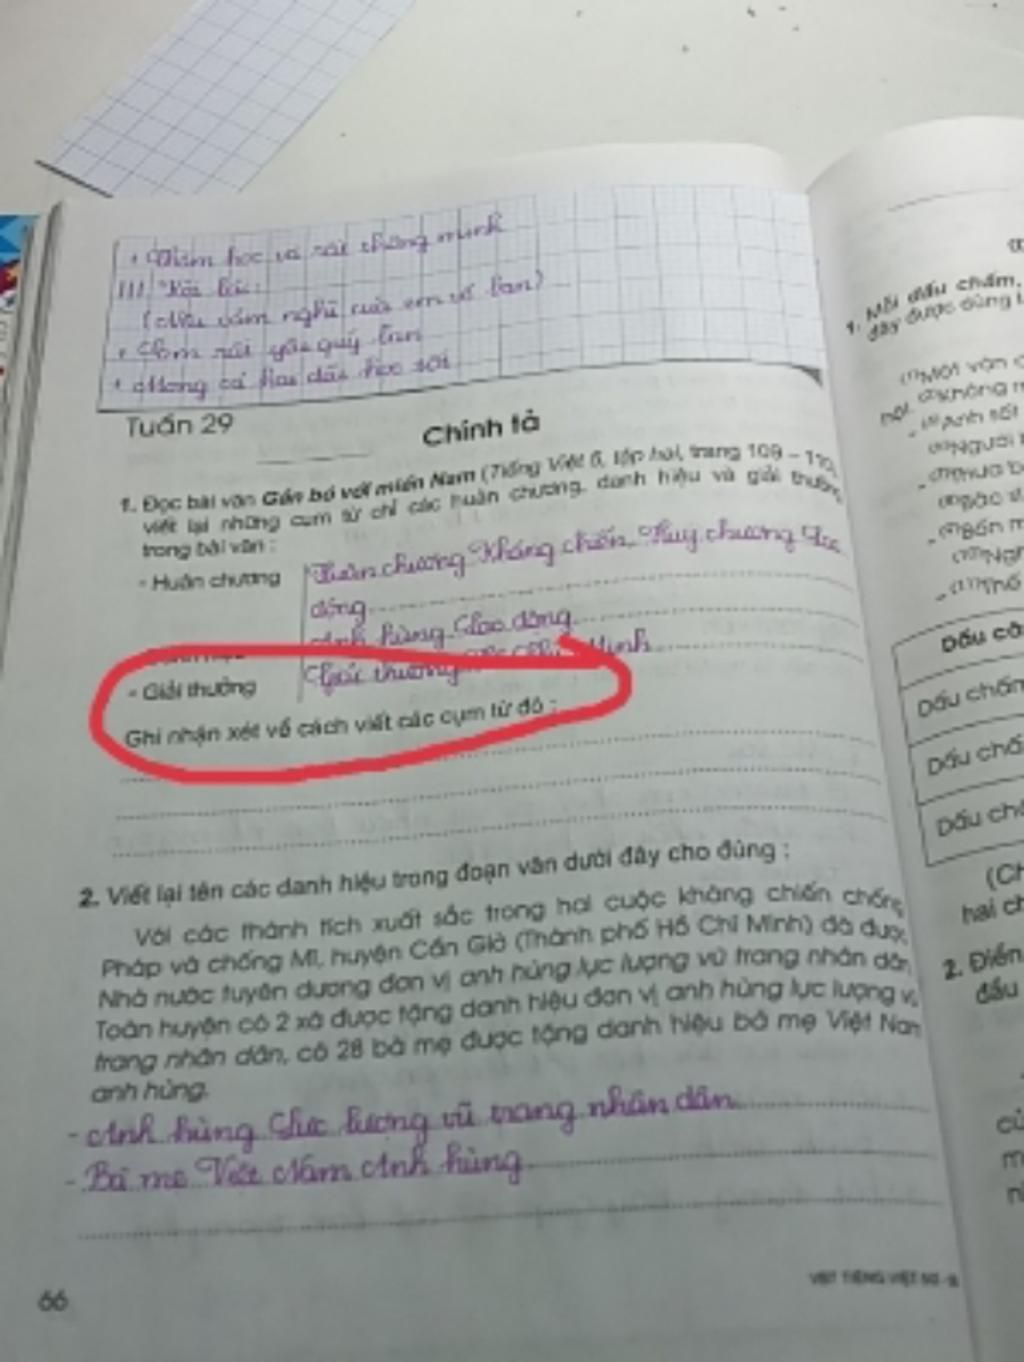 + Chăm học và rất thông minh
III/ Kết bài:
(Nêu cảm nghĩ của em về bạn)
+ Em rất yêu quý bạn
+ Mong cả hai đều học
Tuần 29
Chính tả
1. Đọc bài văn Gắn bó với miền Nam (Tiếng Việt 5, tập hai, trang 109 – 110),
viết lại những cụm từ chỉ các huân chương, danh hiệu và giải thưởng
trong bài văn :
- Huân chương
Huân chương Kháng chiến, Huy chương Lao
động
Anh hùng Lao động
- Giải thưởng
Giải thưởng Hồ Chí Minh
Ghi nhận xét về cách viết các cụm từ đó :
2. Viết lại tên các danh hiệu trong đoạn văn dưới đây cho đúng :
Với các thành tích xuất sắc trong hai cuộc kháng chiến chống
Pháp và chống Mĩ, huyện Cần Giờ (Thành phố Hồ Chí Minh) đã được
Nhà nước tuyên dương đơn vị anh hùng lực lượng vũ trang nhân dân.
Toàn huyện có 2 xã được tặng danh hiệu đơn vị anh hùng lực lượng vũ
trang nhân dân, có 28 bà mẹ được tặng danh hiệu bà mẹ Việt Nam
anh hùng.
- Anh hùng Lực lượng vũ trang nhân dân
- Bà mẹ Việt Nam Anh hùng
66
VBT TIẾNG VIỆT
1. Mỗi dấu chấm,
đây được dùng
(1)Một vận
nội. (2)Không
(3)Anh sốt
(4)Người
(6)Bác
(8)Bốn
(11)Thế
Dấu câ
Dấu chấm
Dấu chấ
Dấu chấ
(Ch
hai ch
2. Điền
dấu